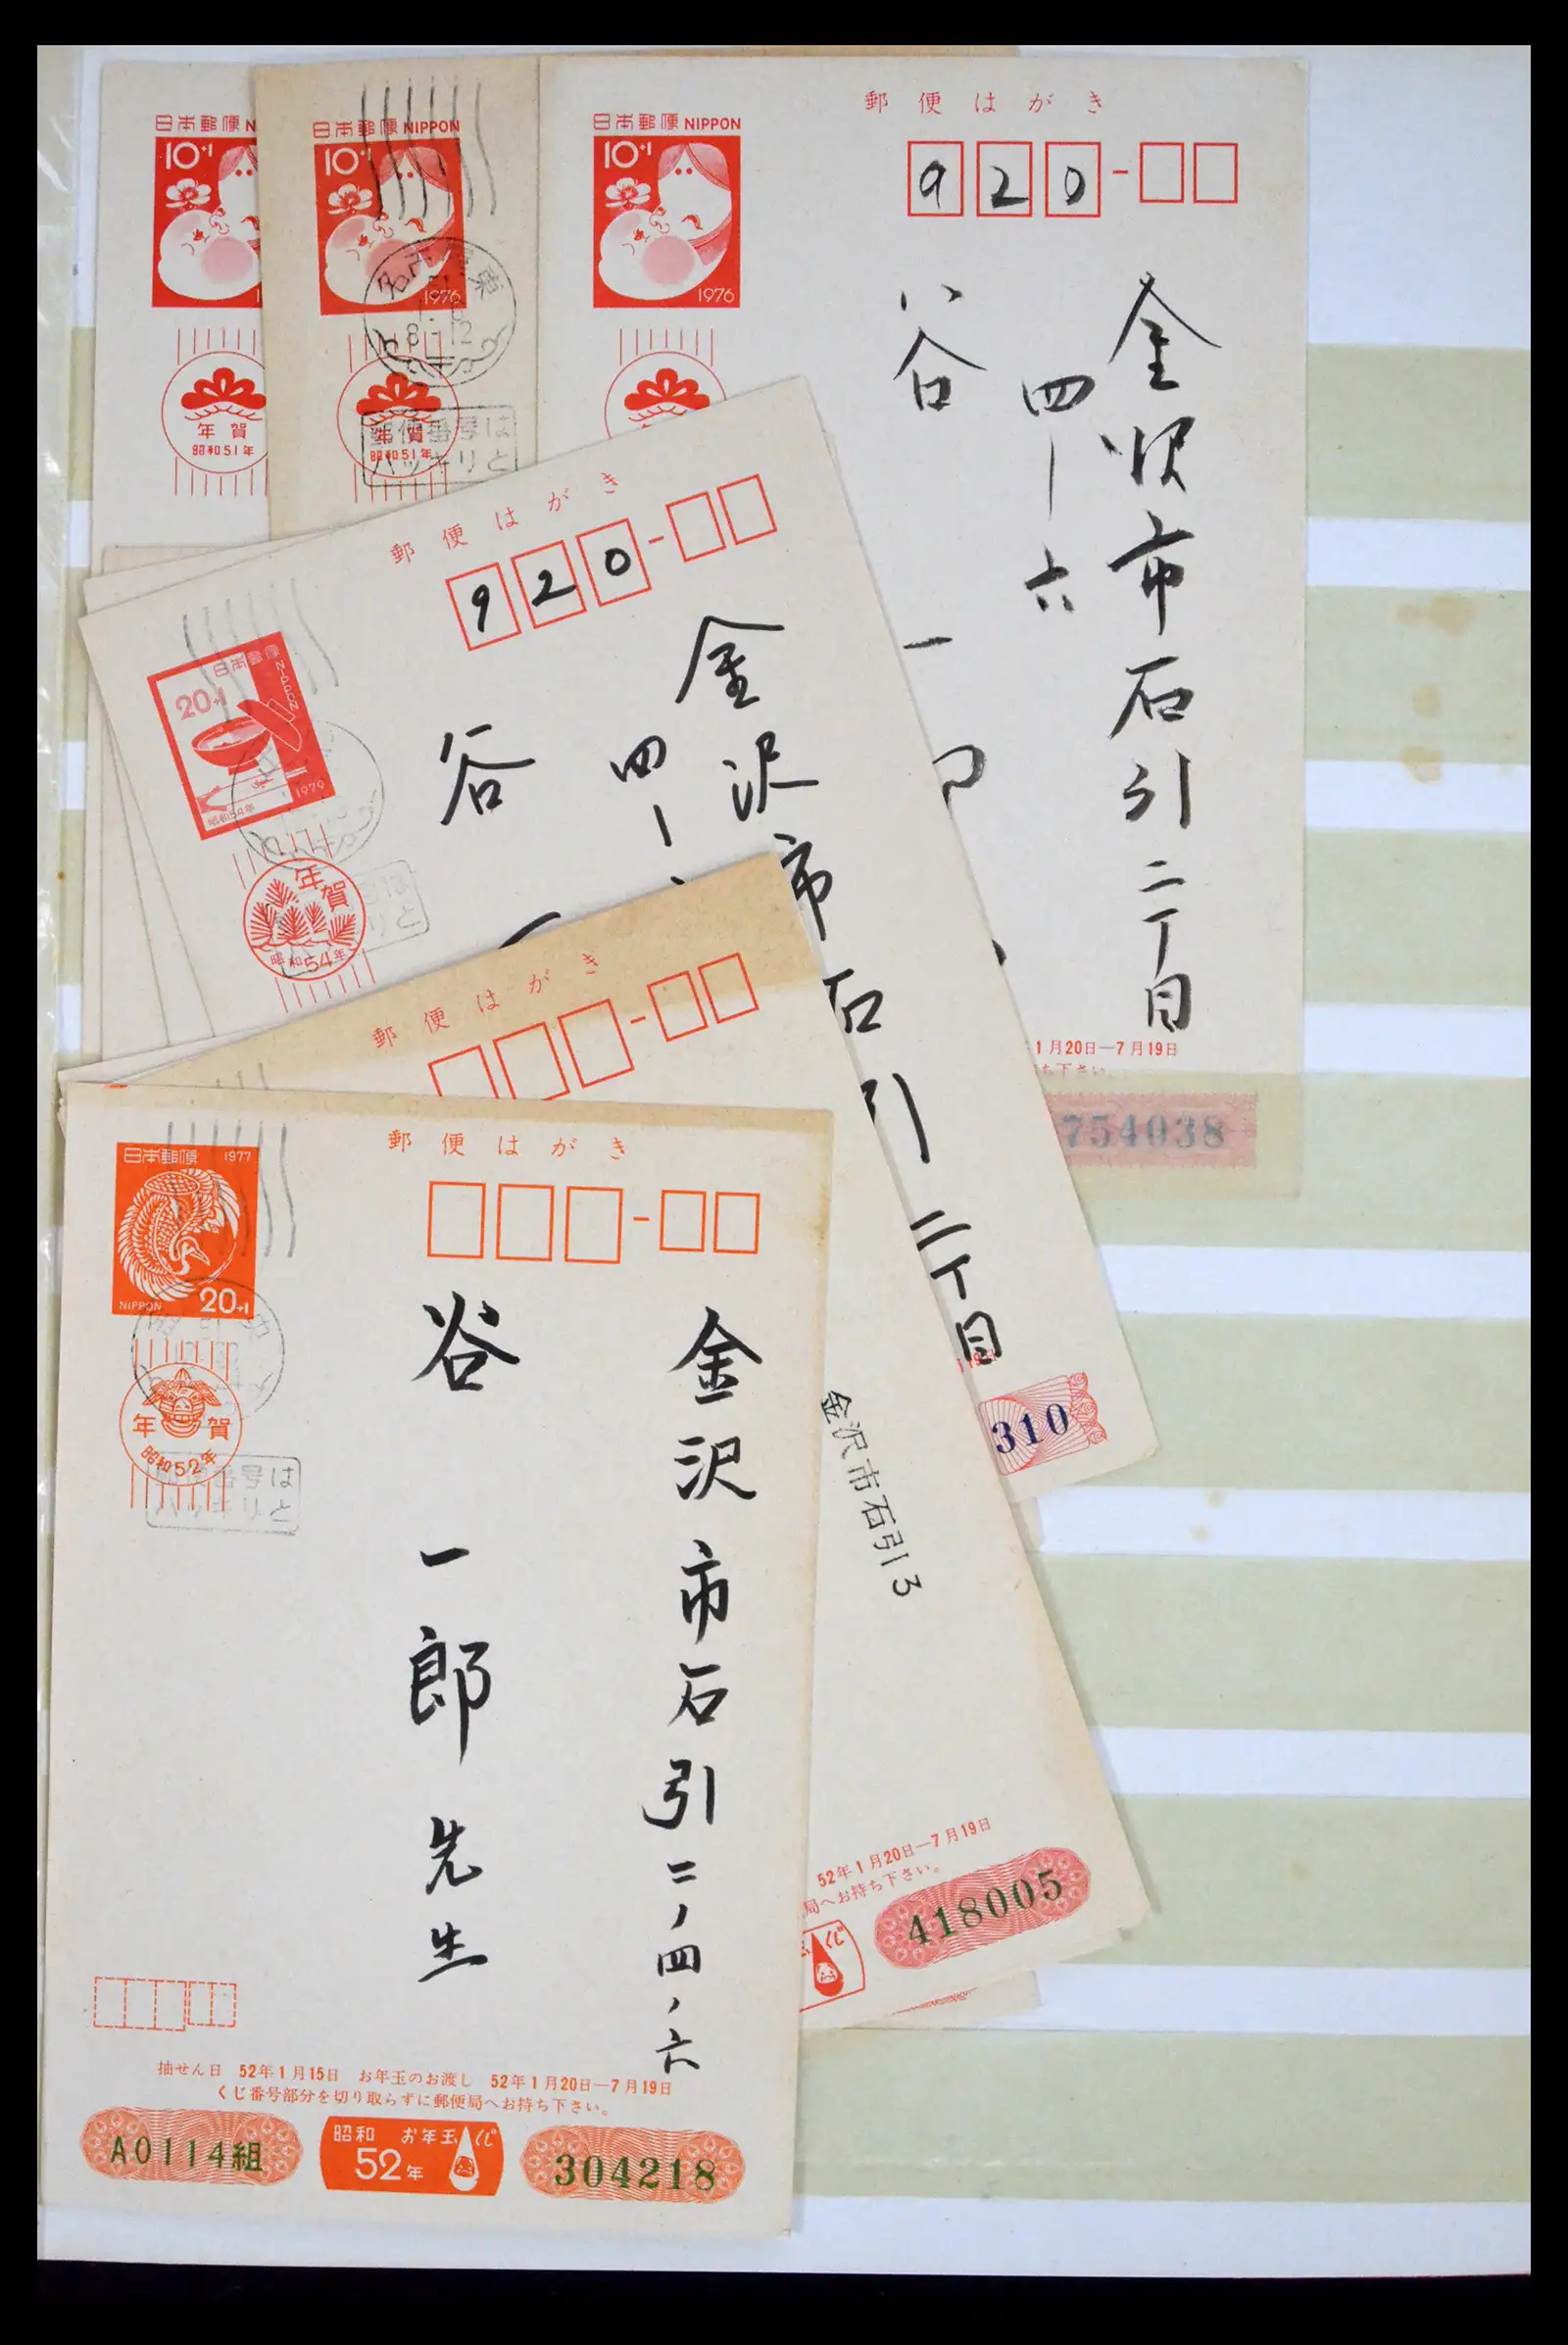 日本郵便 N
10+1
年賀
昭和51年
日本郵便 NIPPON
10+1
1976
8-12
年賀
昭和51年
郵便番号は
ハッキリと
郵便はがき
日本郵便 NIPPON
10+1
1976
920
金沢市石引二丁目
四ー六
谷
一
1月20日―7月19日
ち下さい。
754038
郵便はがき
920
日本郵便
NIPPON
20+1
昭和54年
1979
年賀
昭和54年
は
りと
金沢市石引二丁目
四ー
谷
310
郵便はがき
金沢市石引13
52年1月20日―7月19日
局へお持ち下さい。
くじ
418005
郵便はがき
日本郵便 1977
NIPPON 20+1
年賀
昭和52年
番号は
ハッキリと
金沢市石引二ノ四ノ六
谷一郎先生
抽せん日 52年1月15日 お年玉のお渡し 52年1月20日―7月19日
くじ番号部分を切り取らずに郵便局へお持ち下さい。
A0114組
昭和52年 お年玉くじ
304218